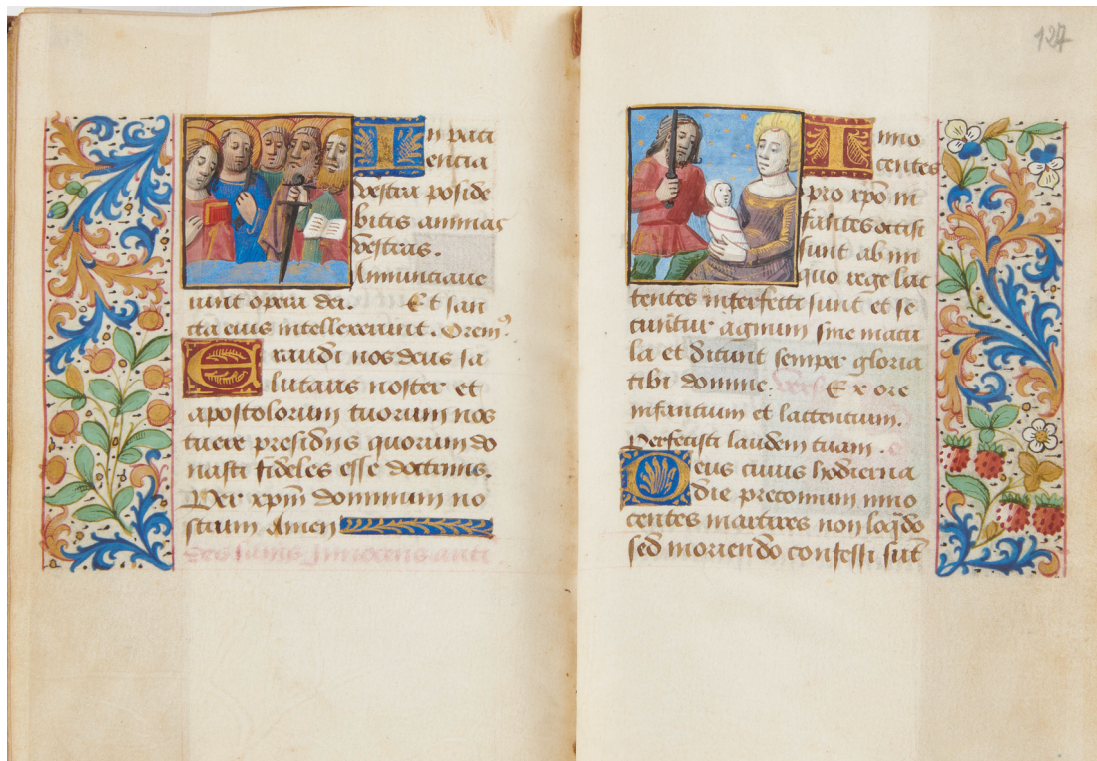 In paci
encia
vestra poside
bitis animas
vestras.
Annunciave
runt opera dei. Et fan
cta eius intellexerunt. Orem9
Exaudi nos deus sa
lutaris noster et
apostolorum tuorum nos
tuere presidiis quorum do
nasti fideles esse doctrinis.
Per xpm dominum no
strum Amen
Des sains Innocens anti
127
Inno
centes
pro xpo in
fantes occisi
sunt ab ini
quo rege lac
tentes interfecti sunt et se
cuntur agnum sine macu
la et dicunt semper gloria
tibi domine. vers Ex ore
infancium et lactencium.
Perfecisti laudem tuam.
Deus cuius hodierna
die preconium inno
centes martires non loqdo
sed moriendo confessi sut